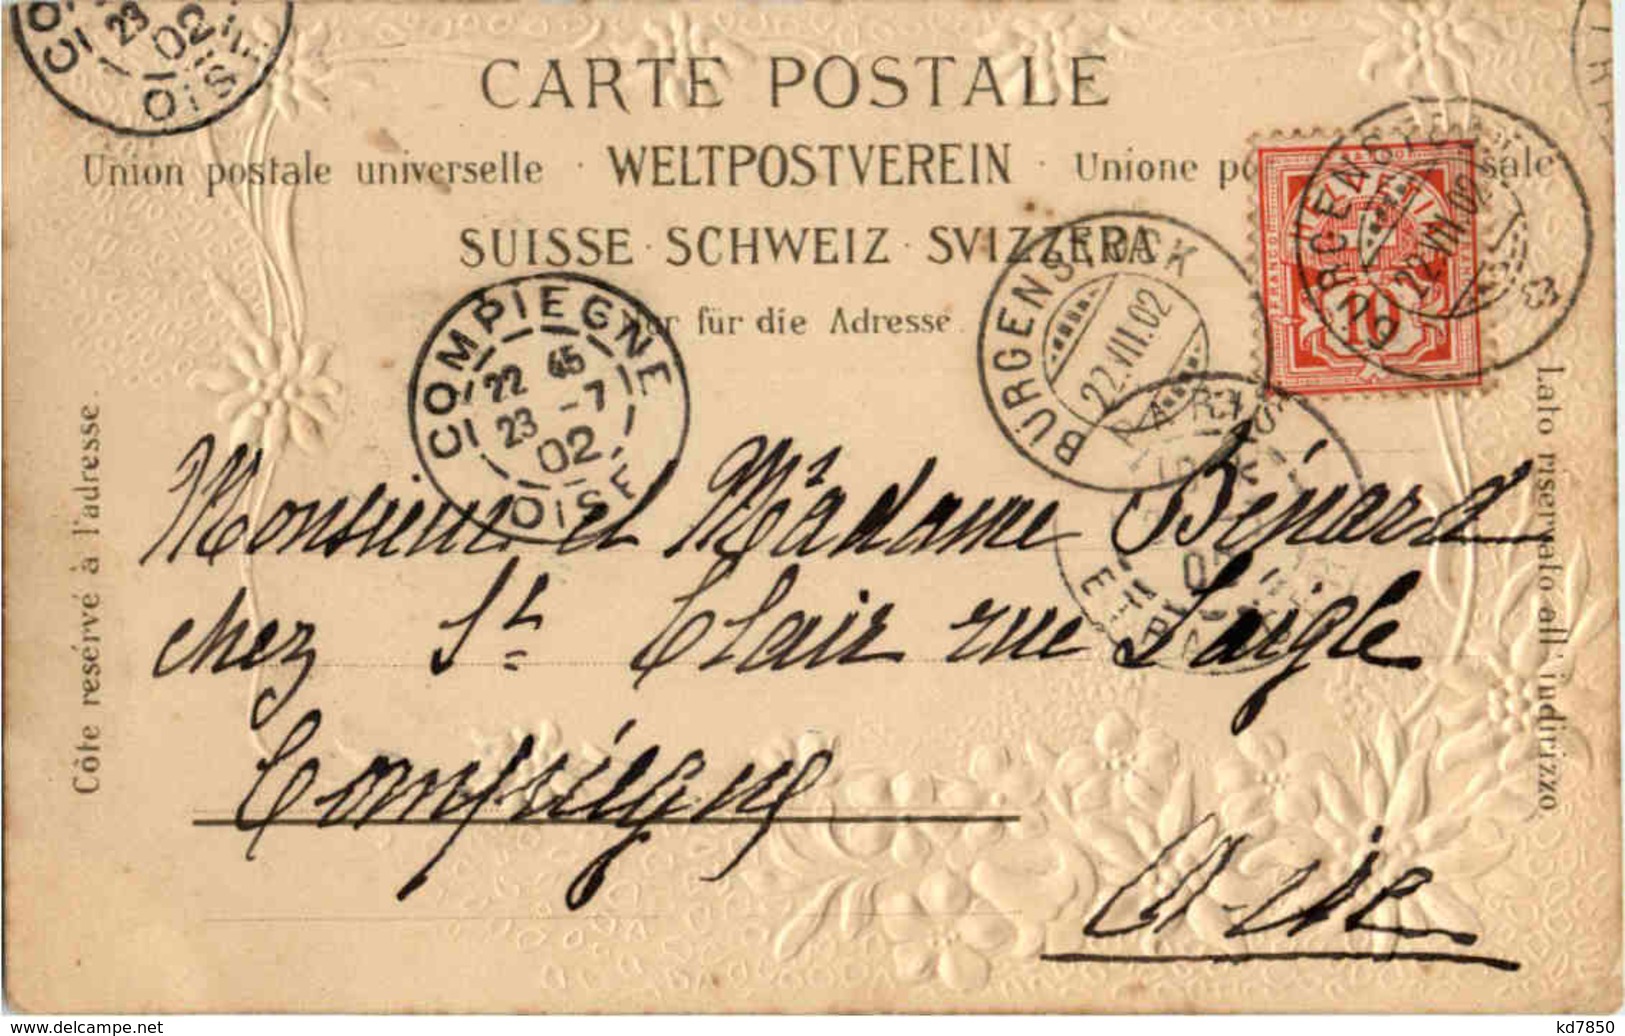 CARTE POSTALE
Union postale universelle · WELTPOSTVEREIN · Unione postale
SUISSE · SCHWEIZ · SVIZZERA
für die Adresse.
Côte resérvé à l'adresse.
Lato riservato all'indirizzo
COMPIEGNE
22 45
23 -7
02
OISE
23
02
OISE
BÜRGENSTOCK
22.VII.02
BÜRGENSTOCK
22.VII.02
HELVETIA
FRANCO
10
Monsieur et Madame Bénard
chez St Clair rue Laigle
Compiégne
Oise
kd7850